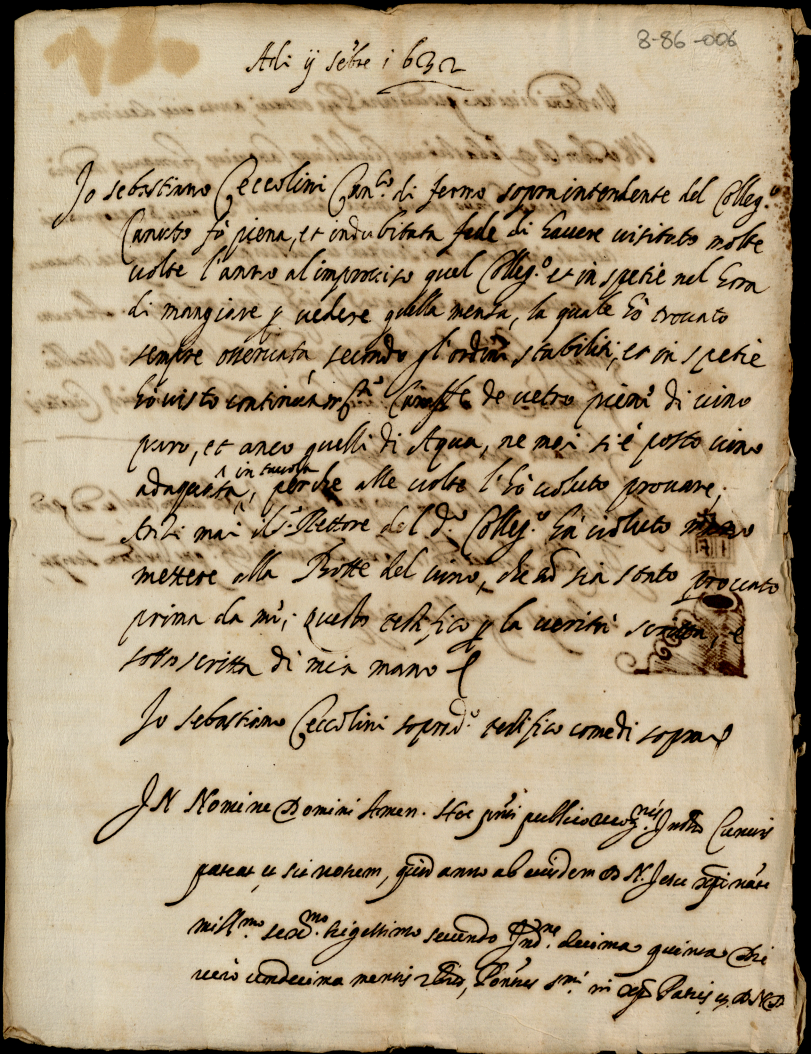 8-86-006
Adi ij 7bre 1632
Io Sebastiano Ceccolini Can.co di fermo sopraintendente del Colleg.o
fò piena, et indubitata fede di havere visitato molte
volte l'anno al'improviso quel Colleg.o et in spetie nel hora
di mangiare p vedere quella mensa, la quale hò trovato
sempre osservata, secondo gl'ordini stabiliti, et in spetie
hò visto de vetro pieni di vino
puro, et anco quelli di Aqua, ne mai si è posto vino
adaquato in tavola, perche alle volte l'hò voluto provare;
Anzi mai il S.r Rettore del d.o Colleg.o hà voluto
mettere alla Botte del vino, che nõ sia stato provato
prima da mi; questo testifico p la verità scritta, e
sottoscritta di mia mano
Io Sebastiano Ceccolini soprad.o testifico come di sopra
IN Nomine Domini Amen. Hoc pñti publico Cunctis
pateat, et sit notum, quod anno ab eiusdem D. N. Jesu xpi
mill.mo sex.mo trigessimo secundo Ind.ne decima quinta Die
vero undecima mensis 7bris, S.mi in xpo Patris, et D. N. D.